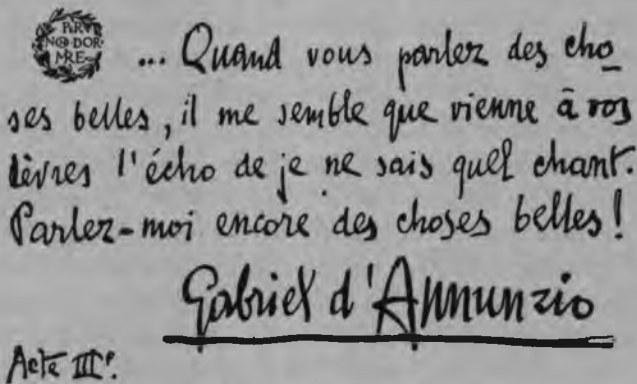 PER
NON DOR
MIRE
... Quand vous parlez des cho
ses belles, il me semble que vienne à vos
lèvres l'écho de je ne sais quel chant.
Parlez-moi encore des choses belles!
Gabriel d'Annunzio
Acte IIIe.